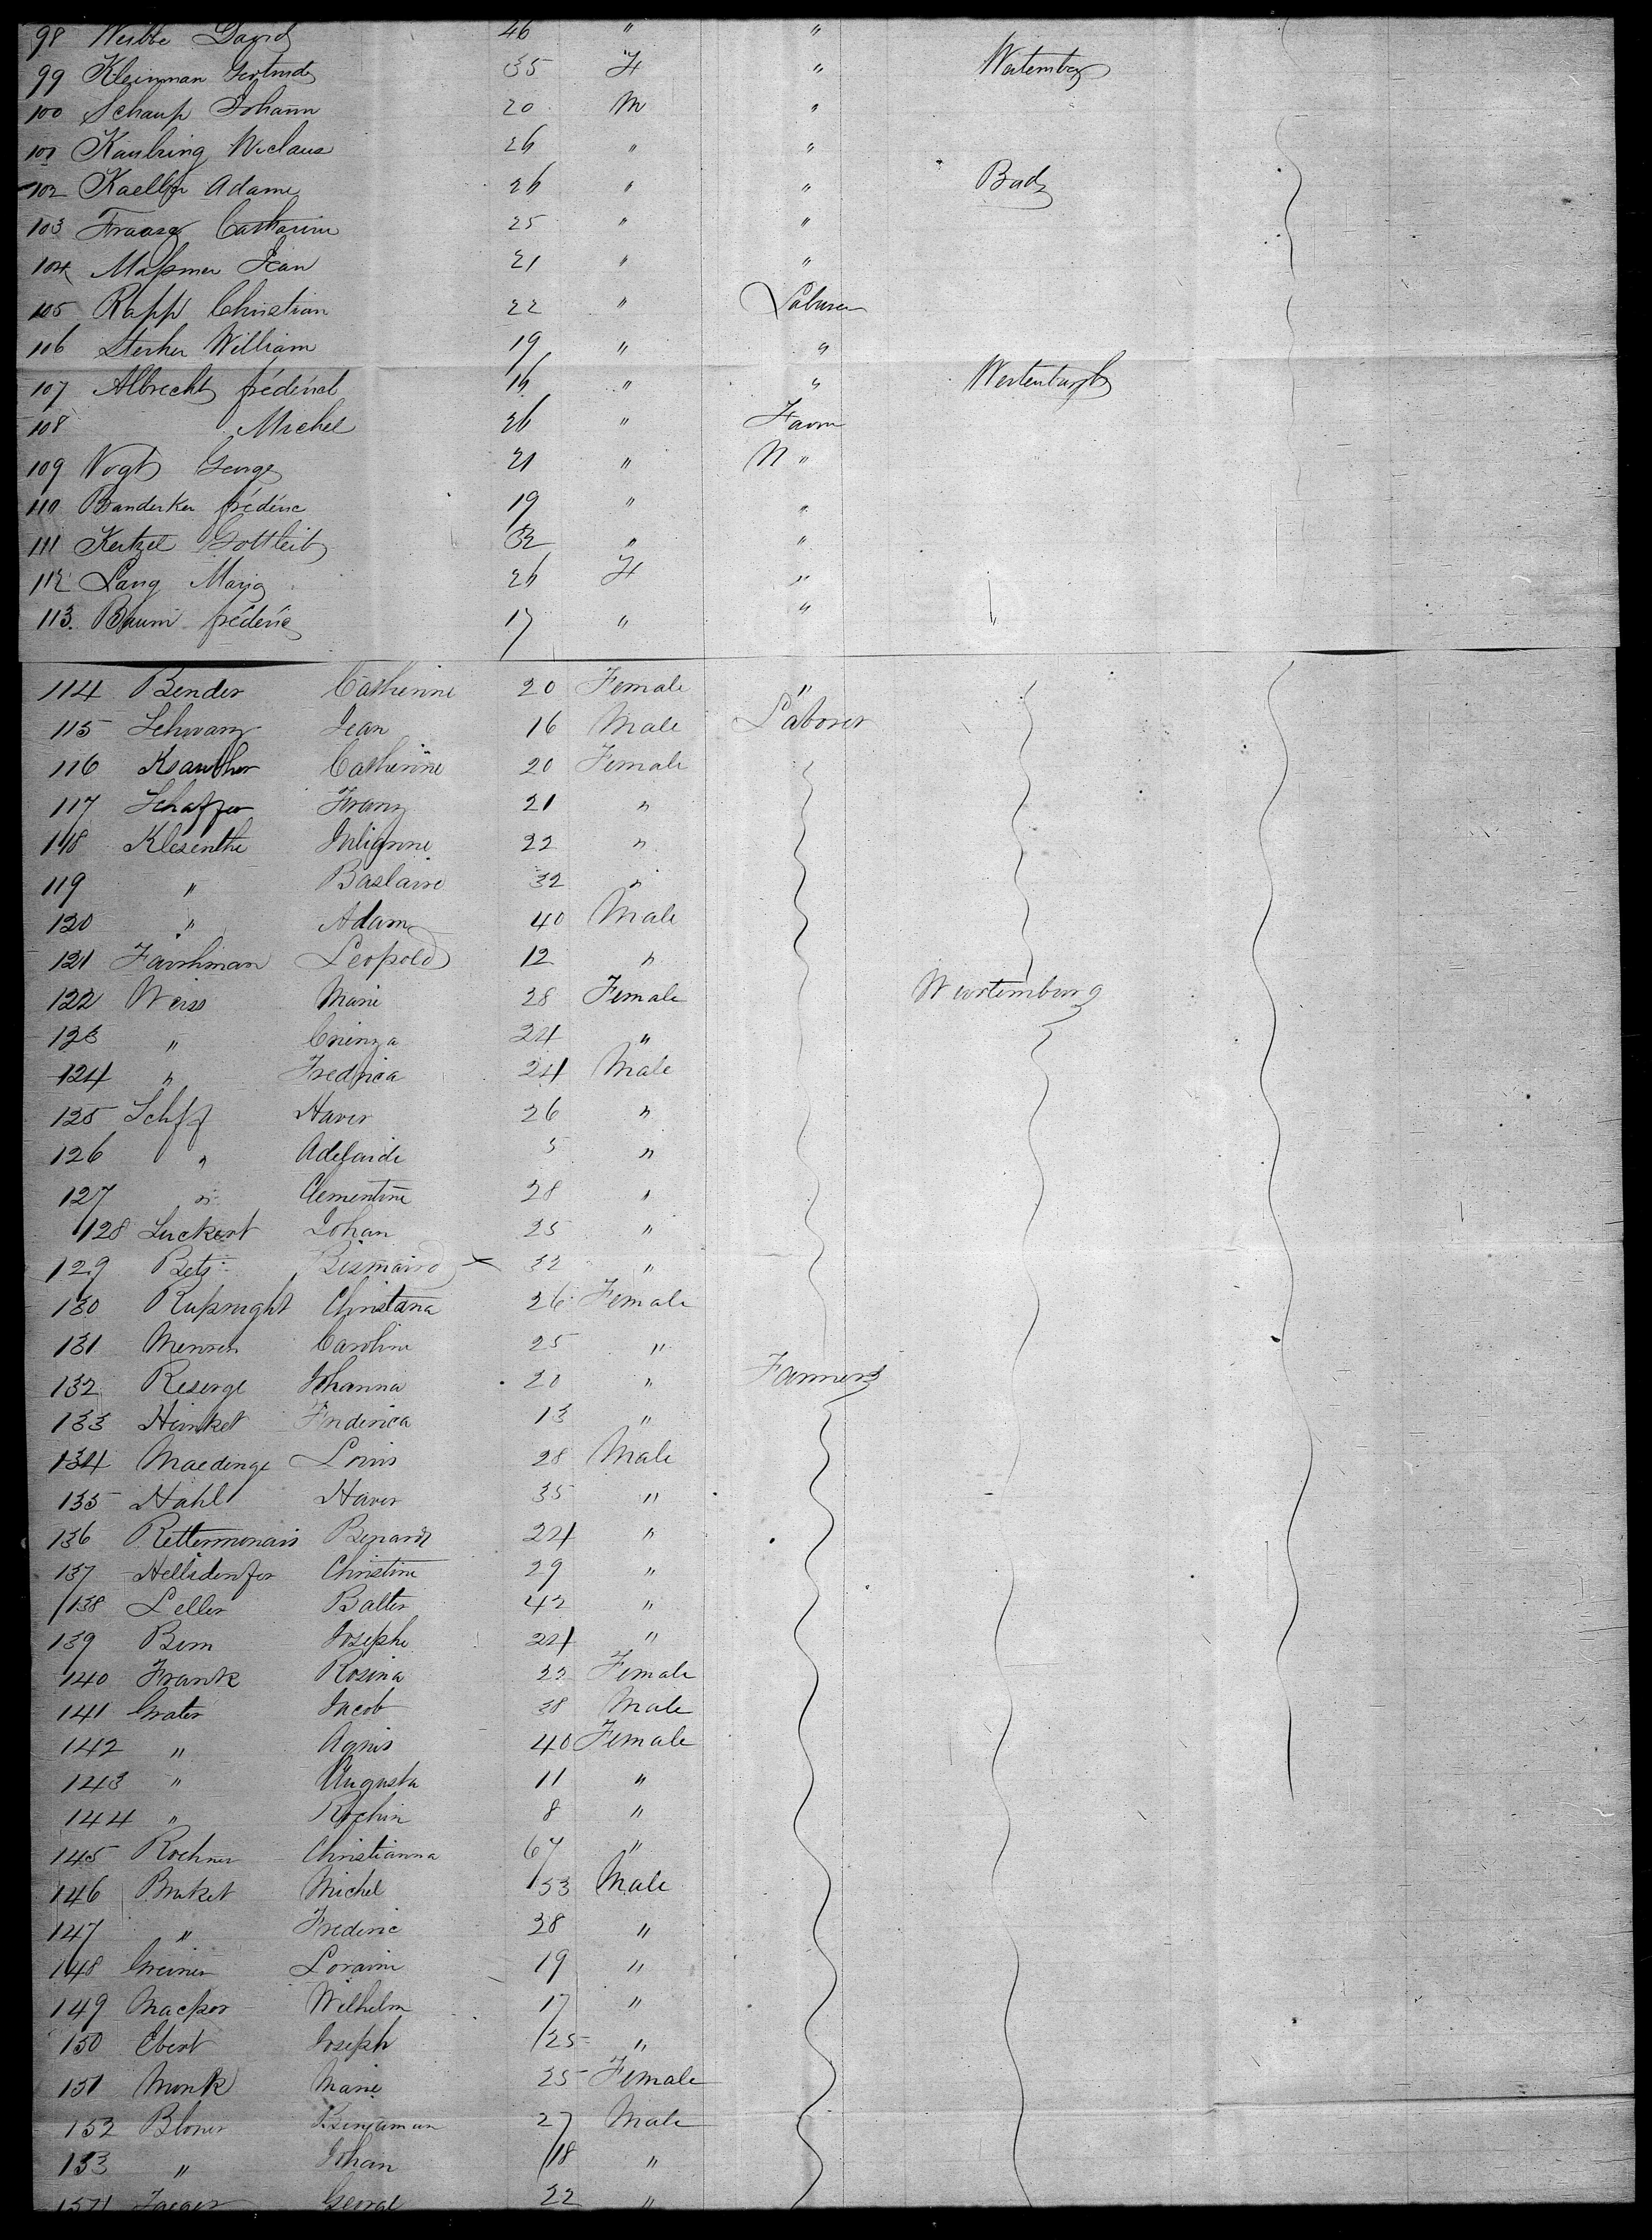 98 Weibbe David 46 " "
99 Kleinman Gertrud 35 F " Wurtemberg
100 Schaup Johann 20 M "
101 Kaulring Niclaus 26 " "
102 Kaelber Adam 26 " " Bad
103 Fraasz Catharine 25 " "
104 Maßmer Jean 21 " "
105 Rapp Christian 22 " Laburer
106 Sterker William 19 " "
107 Albrecht fréderick 16 " " Wertenburgh
108 Michel 26 " Farm
109 Vogt George 21 " N "
110 Banderker fréderic 19 " "
111 Kertzel Gottleib 32 " "
112 Lang Maria 26 F "
113. Baum fréderic 17 " "
114 Bender Catherine 20 Female "
115 Schwarz Jean 16 Male Laborer
116 Catherine 20 Female
117 Schaffer Franz 21 "
118 Klesenthe Julianne 22 "
119 " Baslaire 32 "
120 " Adam 40 Male
121 Farshman Leopold 12 "
122 Weiss Marie 28 Female Wurtemburg
123 " 24 "
124 " Fredrica 24 Male
125 Schff Haver 26 "
126 " Adelaide 5 "
127 " Clementine 28 "
128 Luckert Johan 25 "
129 Betz Bismaird x 32 "
130 Ruprught Christana 26 Female
131 Caroline 25 "
132 Reserge Johanna 20 " Farmers
133 Hinket Frederica 13 "
134 Maedinge Louis 28 Male
135 Hahl Haver 35 "
136 Rettermonais Benard 24 "
137 Hellidenfer Christine 29 "
138 Leller Balter 42 "
139 Bem Josephe 24 "
140 Frank Rosina 22 Female
141 Grater Jacob 38 Male
142 " Agnis 40 Female
143 " Augusta 11 "
144 " Rochin 8 "
145 Rochner Christianna 67 "
146 Bruket Michel 53 Male
147 " Frederic 28 "
148 Greiner Loraine 19 "
149 Macker Wilhelm 17 "
150 Ebert Joseph 25 "
151 Monk Marie 25 Female
152 Bloner Benjaman 27 Male
153 " Johan 18 "
154 Jaeger George 22 "